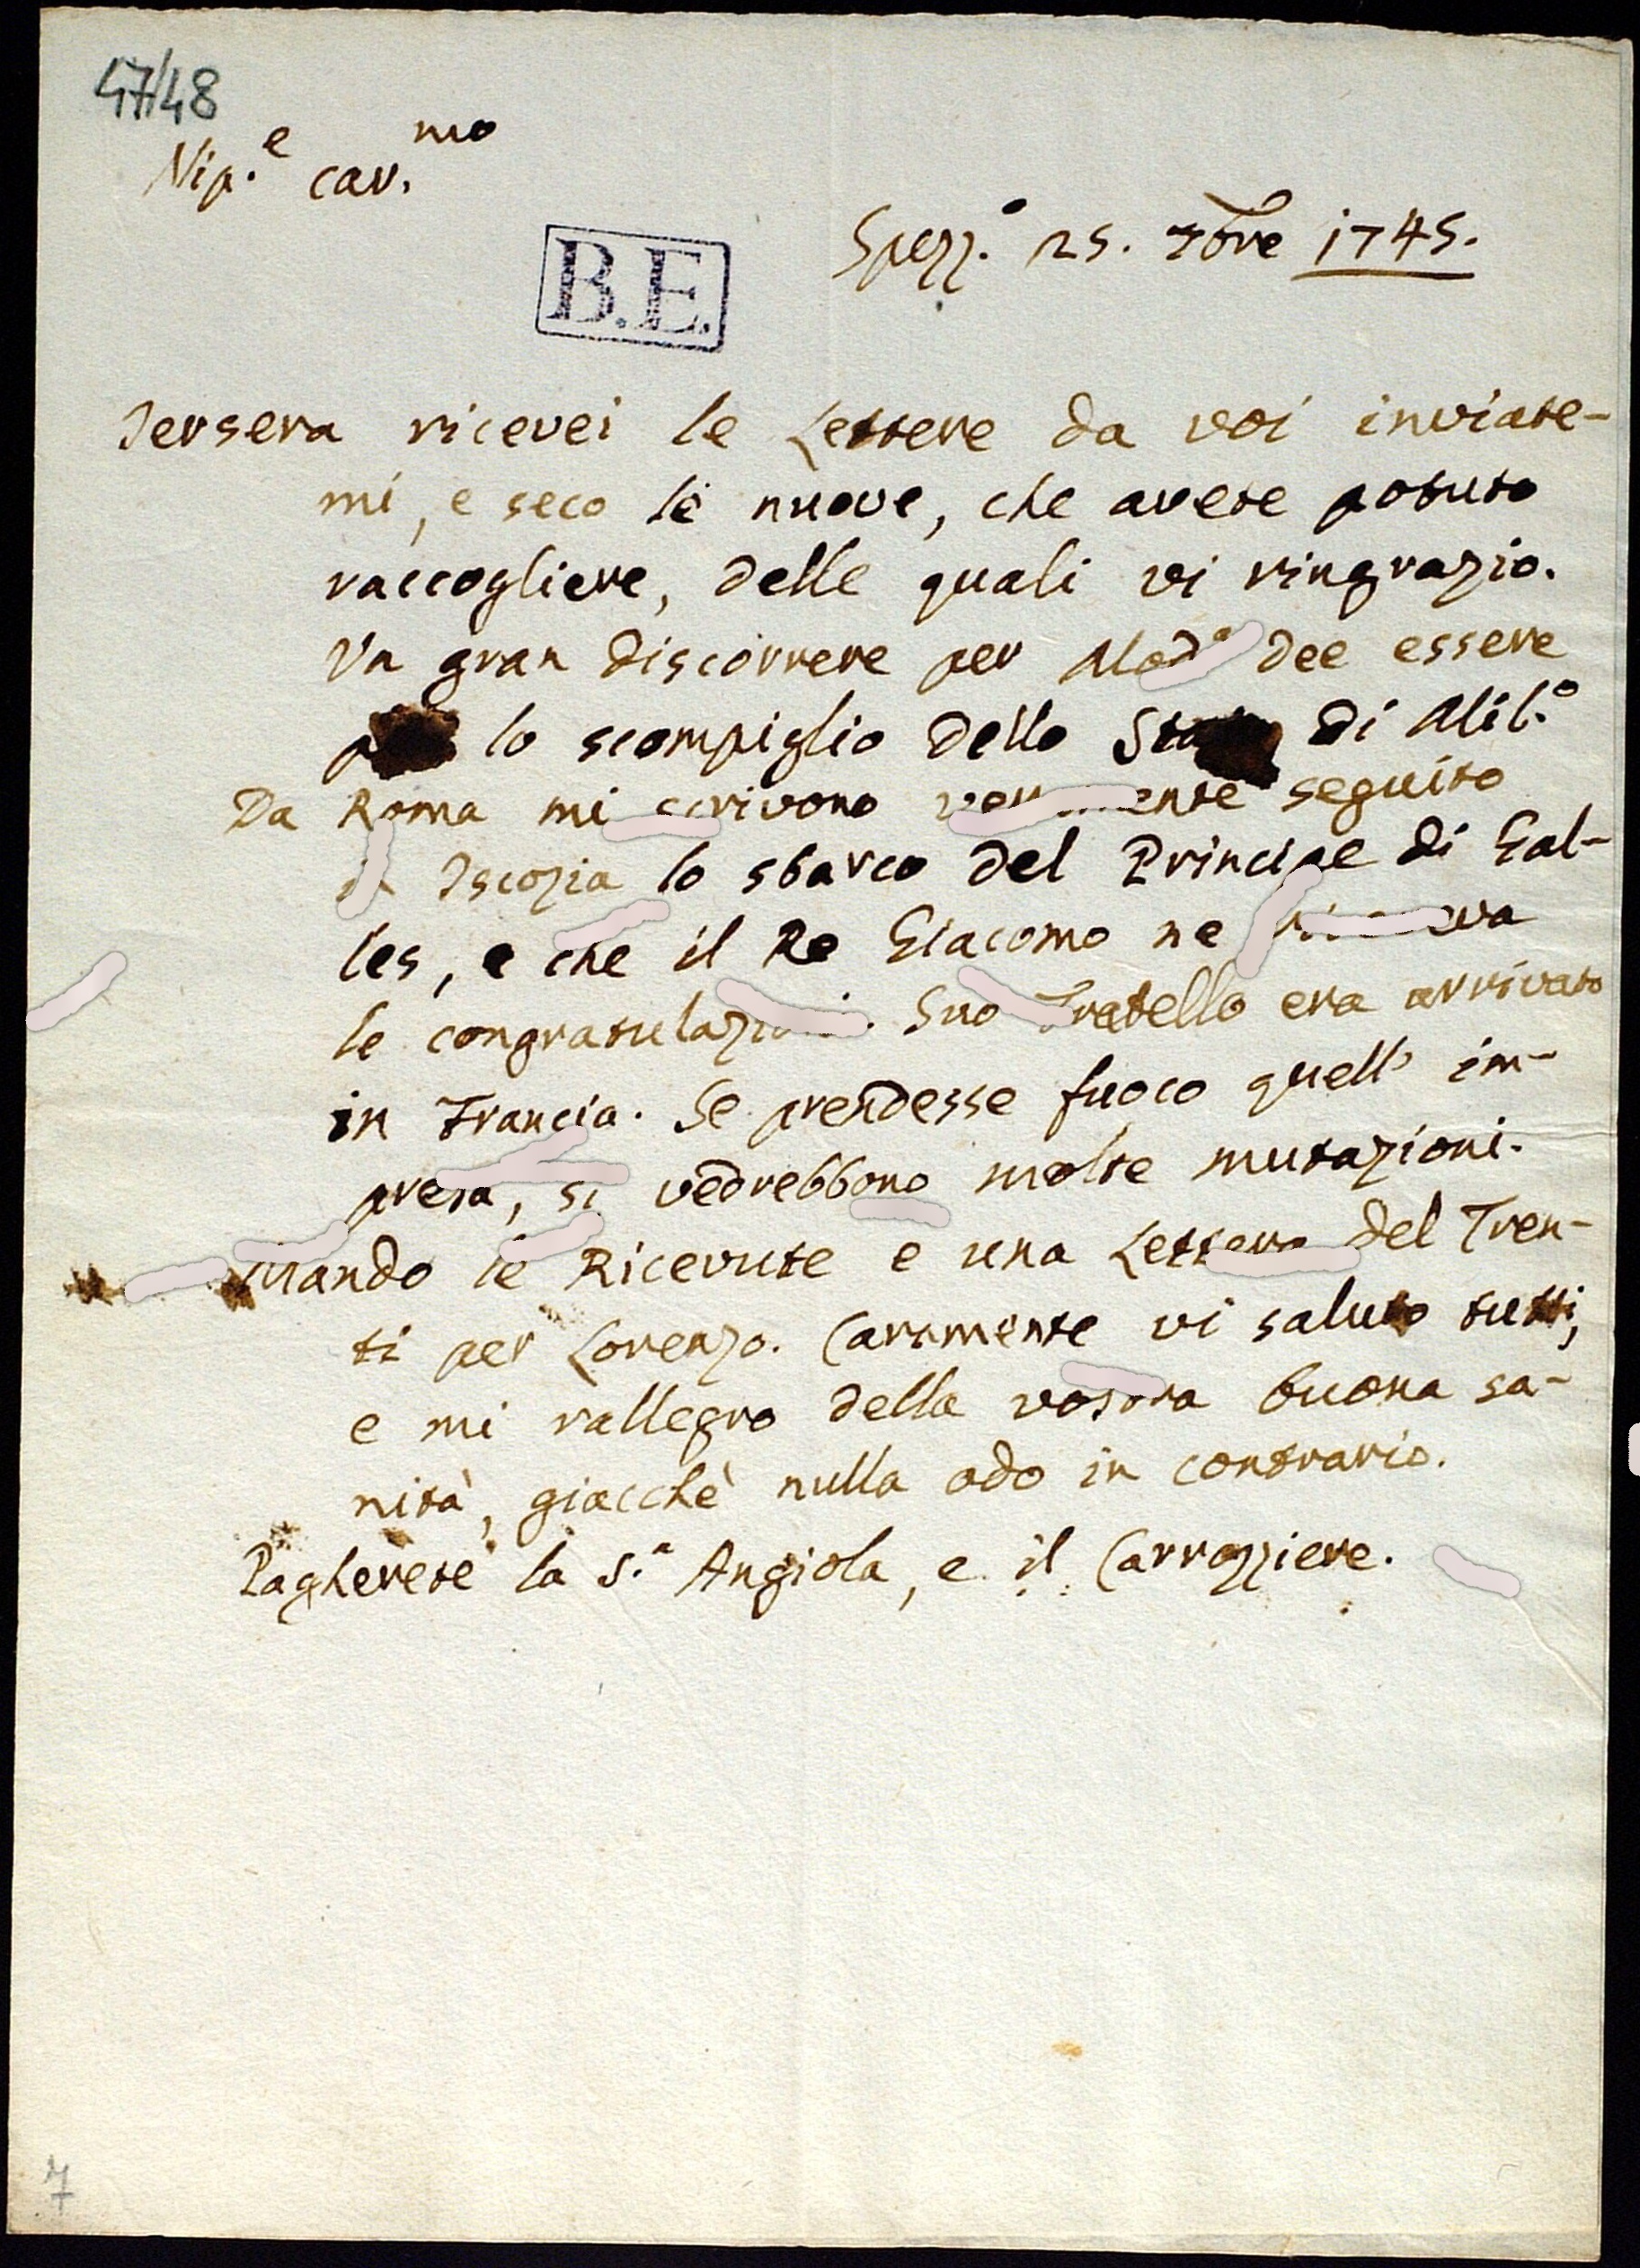 47/48
Nip.e car.mo
B.E.
Spezz.o 25. 7bre 1745.
Jersera ricevei le Lettere da voi inviate-
mi, e seco le nuove, che avete potuto
raccogliere, delle quali vi ringrazio.
Un gran discorrere per Mod.a dee essere
lo scompiglio dello di Mil.o
Da Roma mi scrivono seguito
Iscozia lo sbarco del Principe di Gal-
les, e che il Re Giacomo ne
le congratulazioni. Suo Fratello era arrivato
in Francia. Se prendesse fuoco quell' im-
presa, si vedrebbono molte mutazioni.
Mando le Ricevute e una Lettera del Tren-
ti per Lorenzo. Caramente vi saluto tutti,
e mi rallegro della vostra buona sa-
nità, giacchè nulla odo in contrario.
Pagherete la S.a Angiola, e il Carrozziere.
7